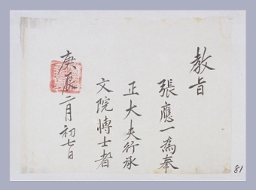 教旨
張應一為奉
正大夫行承
文院博士者
庚辰二月初七日
81